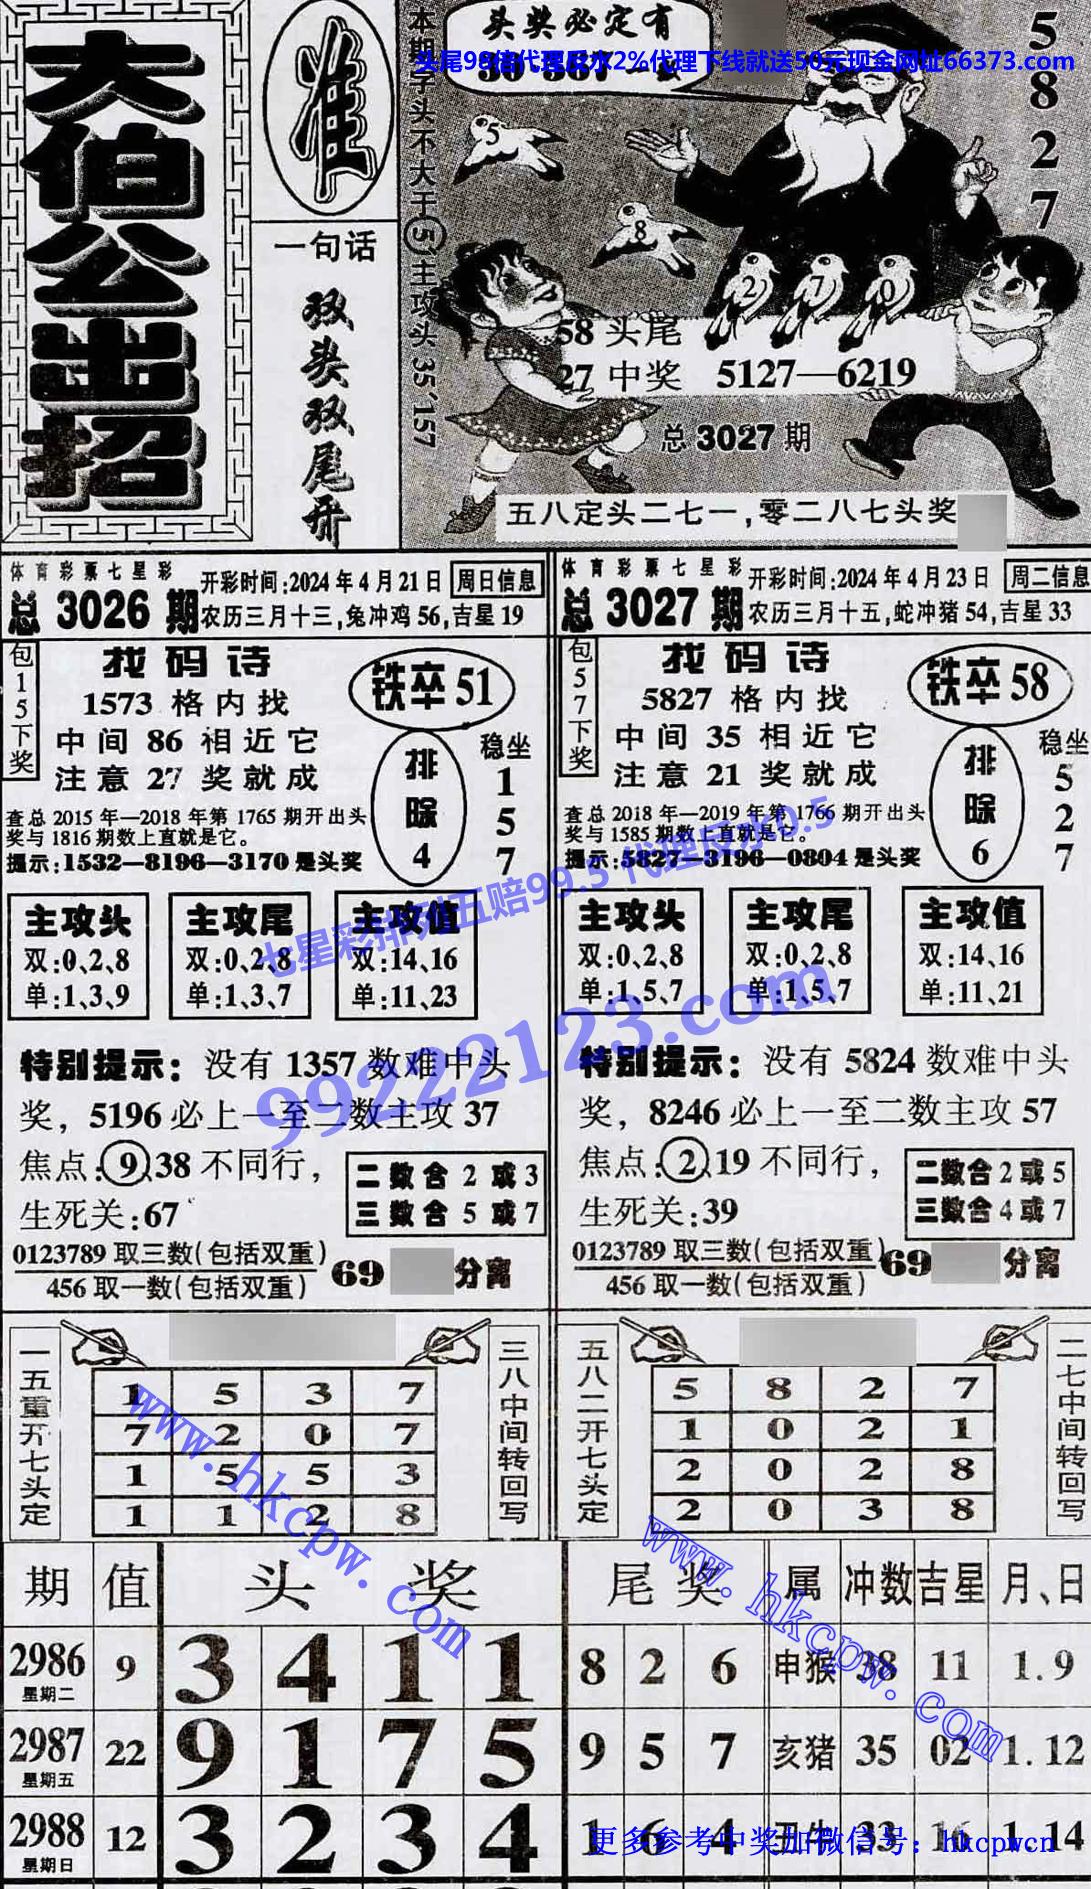 大伯公出招
准
一句话
双头双尾开
本期字头不大于5、主攻头35、157
头奖必定有
头尾98倍代理反水2%代理下线就送50元现金网址66373.com
5
8
2
7
5
8
2
7
0
58 头尾
27 中奖 5127—6219
总 3027 期
五八定头二七一,零二八七头奖
体育彩票七星彩
总 3026 期
开彩时间:2024年4月21日 周日信息
农历三月十三,兔冲鸡56,吉星19
包15下奖
找码诗
1573 格内找
中间 86 相近它
注意 27 奖就成
铁卒51
排除4
稳坐
1
5
7
查总2015年—2018年第1765期开出头
奖与1816期数上直就是它。
提示:1532—8196—3170是头奖
主攻头
双:0、2、8
单:1、3、9
主攻尾
双:0、2、8
单:1、3、7
主攻值
双:14、16
单:11、23
特别提示：没有 1357 数难中头
奖，5196 必上一至二数主攻 37
焦点:9、38 不同行，
生死关:67
二数合 2 或 3
三数合 5 或 7
0123789 取三数(包括双重)
456 取一数(包括双重)
69 分离
一五重开七头定
三八中间转回写
1 5 3 7
7 2 0 7
1 5 5 3
1 1 2 8
体育彩票七星彩
总 3027 期
开彩时间:2024年4月23日 周二信息
农历三月十五,蛇冲猪54,吉星33
包57下奖
找码诗
5827 格内找
中间 35 相近它
注意 21 奖就成
铁卒58
排除6
稳坐
5
2
7
查总2018年—2019年第1766期开出头
奖与1585期数上直就是它。
提示:5827—3196—0804是头奖
主攻头
双:0、2、8
单:1、5、7
主攻尾
双:0、2、8
单:1、5、7
主攻值
双:14、16
单:11、21
特别提示：没有 5824 数难中头
奖，8246 必上一至二数主攻 57
焦点:2、19 不同行，
生死关:39
二数合 2 或 5
三数合 4 或 7
0123789 取三数(包括双重)
456 取一数(包括双重)
69 分离
五八二开七头定
二七中间转回写
5 8 2 7
1 0 2 1
2 0 2 8
2 0 3 8
七星彩排列五赔99.5 代理反水0.5
99222123.com
www.hkcpw.com
www.hkcpw.com
期 值 头奖 尾奖 属 冲数 吉星 月、日
2986 星期二 9 3 4 1 1 8 2 6 申猴 38 11 1.9
2987 星期五 22 9 1 7 5 9 5 7 亥猪 35 02 1.12
2988 星期日 12 3 2 3 4 1 6 4 丑牛 33 16 1.14
更多参考中奖加微信号：hkcpwcn